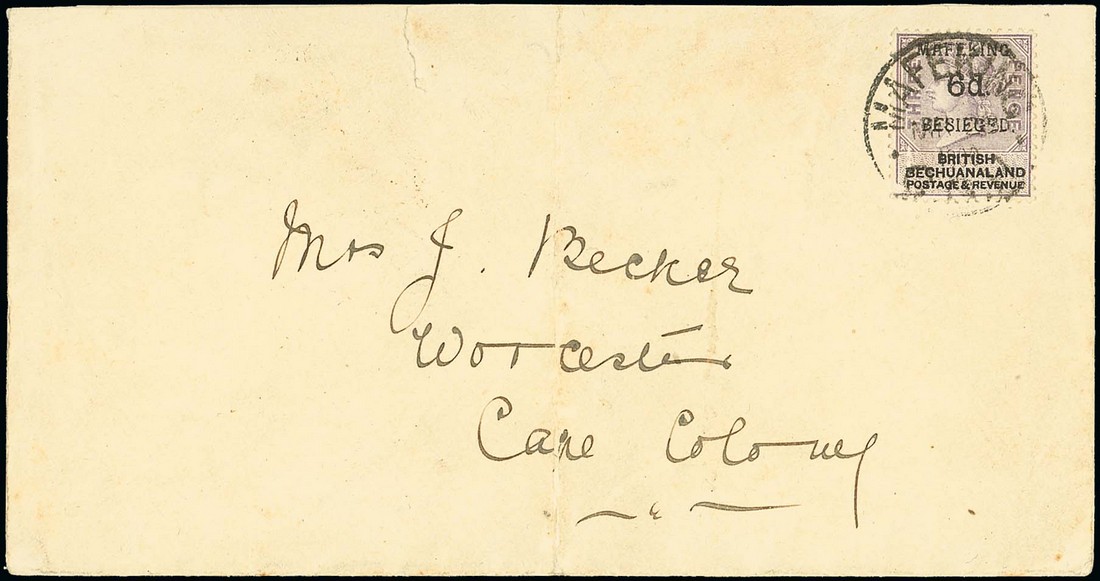 MAFEKING
6d.
BESIEGED.
BRITISH
BECHUANALAND
POSTAGE & REVENUE
MAFEKING
Mrs J. Becker
Worcester
Cape Colony